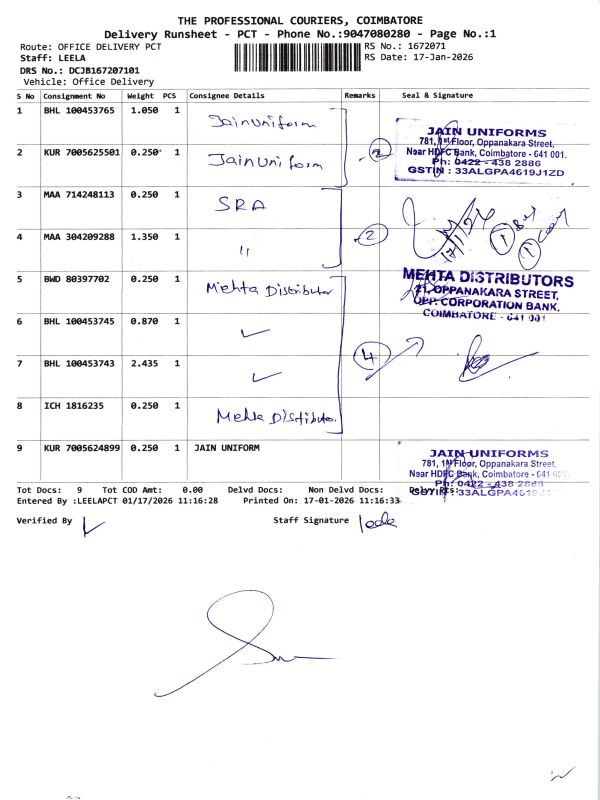 THE PROFESSIONAL COURIERS, COIMBATORE
Delivery Runsheet - PCT - Phone No.:9047080280 - Page No.:1
Route: OFFICE DELIVERY PCT
RS No.: 1672071
Staff: LEELA
RS Date: 17-Jan-2026
DRS No.: DCJB167207101
Vehicle: Office Delivery
S No Consignment No Weight PCS Consignee Details Remarks Seal & Signature
1 BHL 100453765 1.050 1 Jain Uniform
2 KUR 7005625501 0.250 1 Jain Uniform 2
JAIN UNIFORMS
781, 1st Floor, Oppanakara Street,
Near HDFC Bank, Coimbatore - 641 001.
Ph: 0422 - 438 2886
GSTIN : 33ALGPA4619J1ZD
3 MAA 714248113 0.250 1 SRA
4 MAA 304209288 1.350 1 " 2
17/1/26
1
1
5 BWD 80397702 0.250 1 Mehta Distributor
MEHTA DISTRIBUTORS
71, OPPANAKARA STREET,
OPP. CORPORATION BANK,
COIMBATORE - 641 001
6 BHL 100453745 0.870 1 ✓
7 BHL 100453743 2.435 1 ✓ 4
8 ICH 1816235 0.250 1 Mehta Distributor
9 KUR 7005624899 0.250 1 JAIN UNIFORM
JAIN UNIFORMS
781, 1st Floor, Oppanakara Street,
Near HDFC Bank, Coimbatore - 641 001.
Ph: 0422 - 438 2886
GSTIN : 33ALGPA4619J1
Tot Docs: 9 Tot COD Amt: 0.00 Delvd Docs: Non Delvd Docs: Delvy PCS:
Entered By :LEELAPCT 01/17/2026 11:16:28 Printed On: 17-01-2026 11:16:33
Verified By
Staff Signature Leela